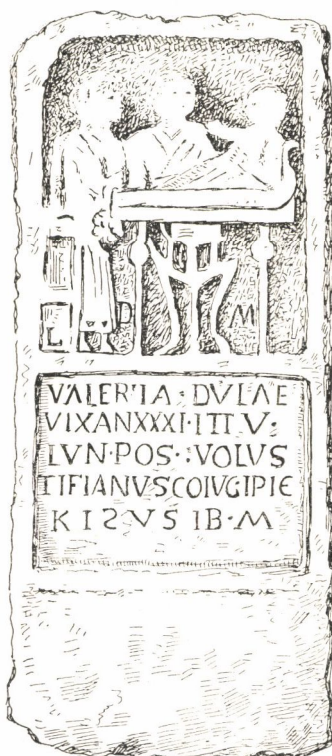 L D M
VALERIA · DVLAE
VIXANXXXI·ITTV·
LVN·POS·:VOLUS
TIFIANVSCOIVGIPIE
KISVSIB·M